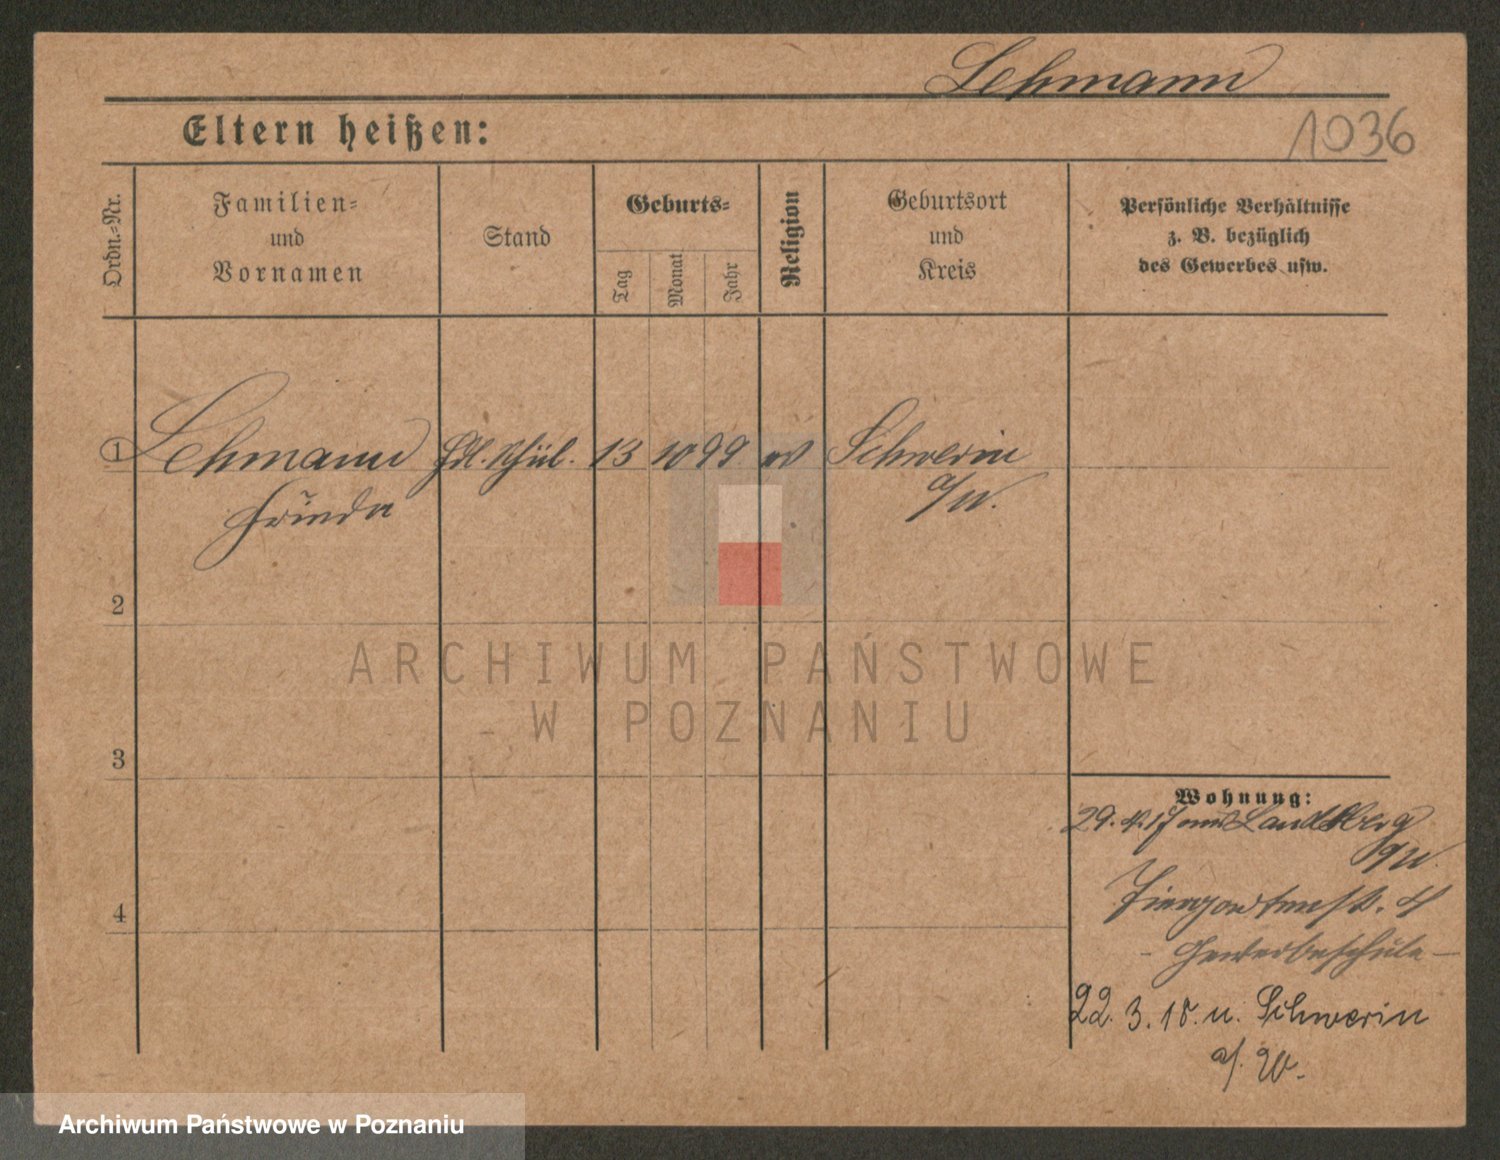 Lehmann
Eltern heißen:
1036
Ordn.-Nr.
Familien-
und
Vornamen
Stand
Geburts-
Tag
Monat
Jahr
Religion
Geburtsort
und
Kreis
Persönliche Verhältnisse
z. B. bezüglich
des Gewerbes usw.
1 Lehmann Hdl. Schül. 13 10 99 ev Schwerin
Frieda a/W.
2
ARCHIWUM PAŃSTWOWE
W POZNANIU
3
Wohnung:
29. 4. 17 aus Landsberg
a/W.
4
4
- Gewerbeschule -
22. 3. 18. n. Schwerin
a/. W.
Archiwum Państwowe w Poznaniu